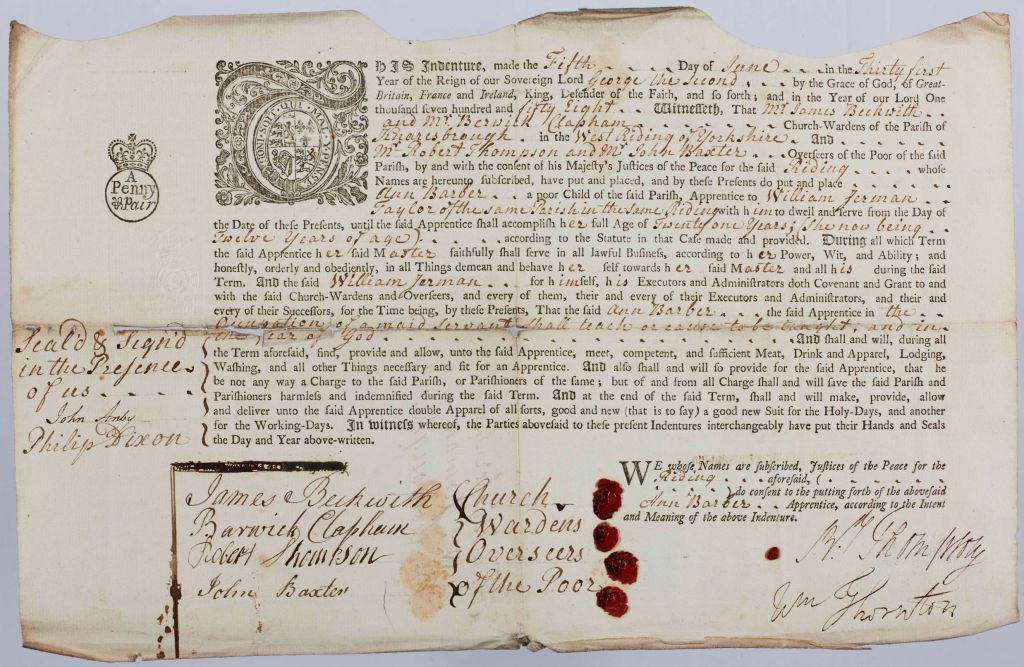 THIS Indenture, made the Fifth Day of June in the Thirty first
Year of the Reign of our Sovereign Lord George the Second by the Grace of God, of Great-
Britain, France and Ireland, King, Defender of the Faith, and so forth; and in the Year of our Lord One
thousand seven hundred and fifty Eight Witnesseth, That Mr. James Beckwith
and Mr. Berwick Clapham Church-Wardens of the Parish of
Knaresbrough in the West Riding of Yorkshire And
Mr. Robert Thompson and Mr. John Baxter Overseers of the Poor of the said
Parish, by and with the consent of his Majesty's Justices of the Peace for the said Riding whose
Names are hereunto subscribed, have put and placed, and by these Presents do put and place
Ann Barber a poor Child of the said Parish, Apprentice to William Jerman
Taylor of the same Parish in the same Riding with him to dwell and serve from the Day of
the Date of these Presents, until the said Apprentice shall accomplish her full Age of Twenty one Years; (she now being
Twelve Years of age) according to the Statute in that Case made and provided. During all which Term
the said Apprentice her said Master faithfully shall serve in all lawful Business, according to her Power, Wit, and Ability; and
honestly, orderly and obediently, in all Things demean and behave her self towards her said Master and all his during the said
Term. And the said William Jerman for himself, his Executors and Administrators doth Covenant and Grant to and
with the said Church-Wardens and Overseers, and every of them, their and every of their Executors and Administrators, and their and
every of their Successors, for the Time being, by these Presents, That the said Ann Barber the said Apprentice in the
Occupation of a maid servant shall teach or cause to be taught, and in
the fear of God And shall and will, during all
the Term aforesaid, find, provide and allow, unto the said Apprentice, meet, competent, and sufficient Meat, Drink and Apparel, Lodging,
Washing, and all other Things necessary and fit for an Apprentice. And also shall and will so provide for the said Apprentice, that he
be not any way a Charge to the said Parish, or Parishioners of the same; but of and from all Charge shall and will save the said Parish and
Parishioners harmless and indemnified during the said Term. And at the end of the said Term, shall and will make, provide, allow
and deliver unto the said Apprentice double Apparel of all sorts, good and new (that is to say) a good new Suit for the Holy-Days, and another
for the Working-Days. In witness whereof, the Parties abovesaid to these present Indentures interchangeably have put their Hands and Seals
the Day and Year above-written.
A
Penny
Pair
Seal'd & Sign'd
in the Presence
of us
John
Philip Dixon
James Beckwith Church
Barwick Clapham Wardens
Robert Thompson Overseers
John Baxter of the Poor
WE whose Names are subscribed, Justices of the Peace for the
Riding aforesaid, (
) do consent to the putting forth of the abovesaid
Ann Barber Apprentice, according to the Intent
and Meaning of the above Indenture.
Wm Thornton